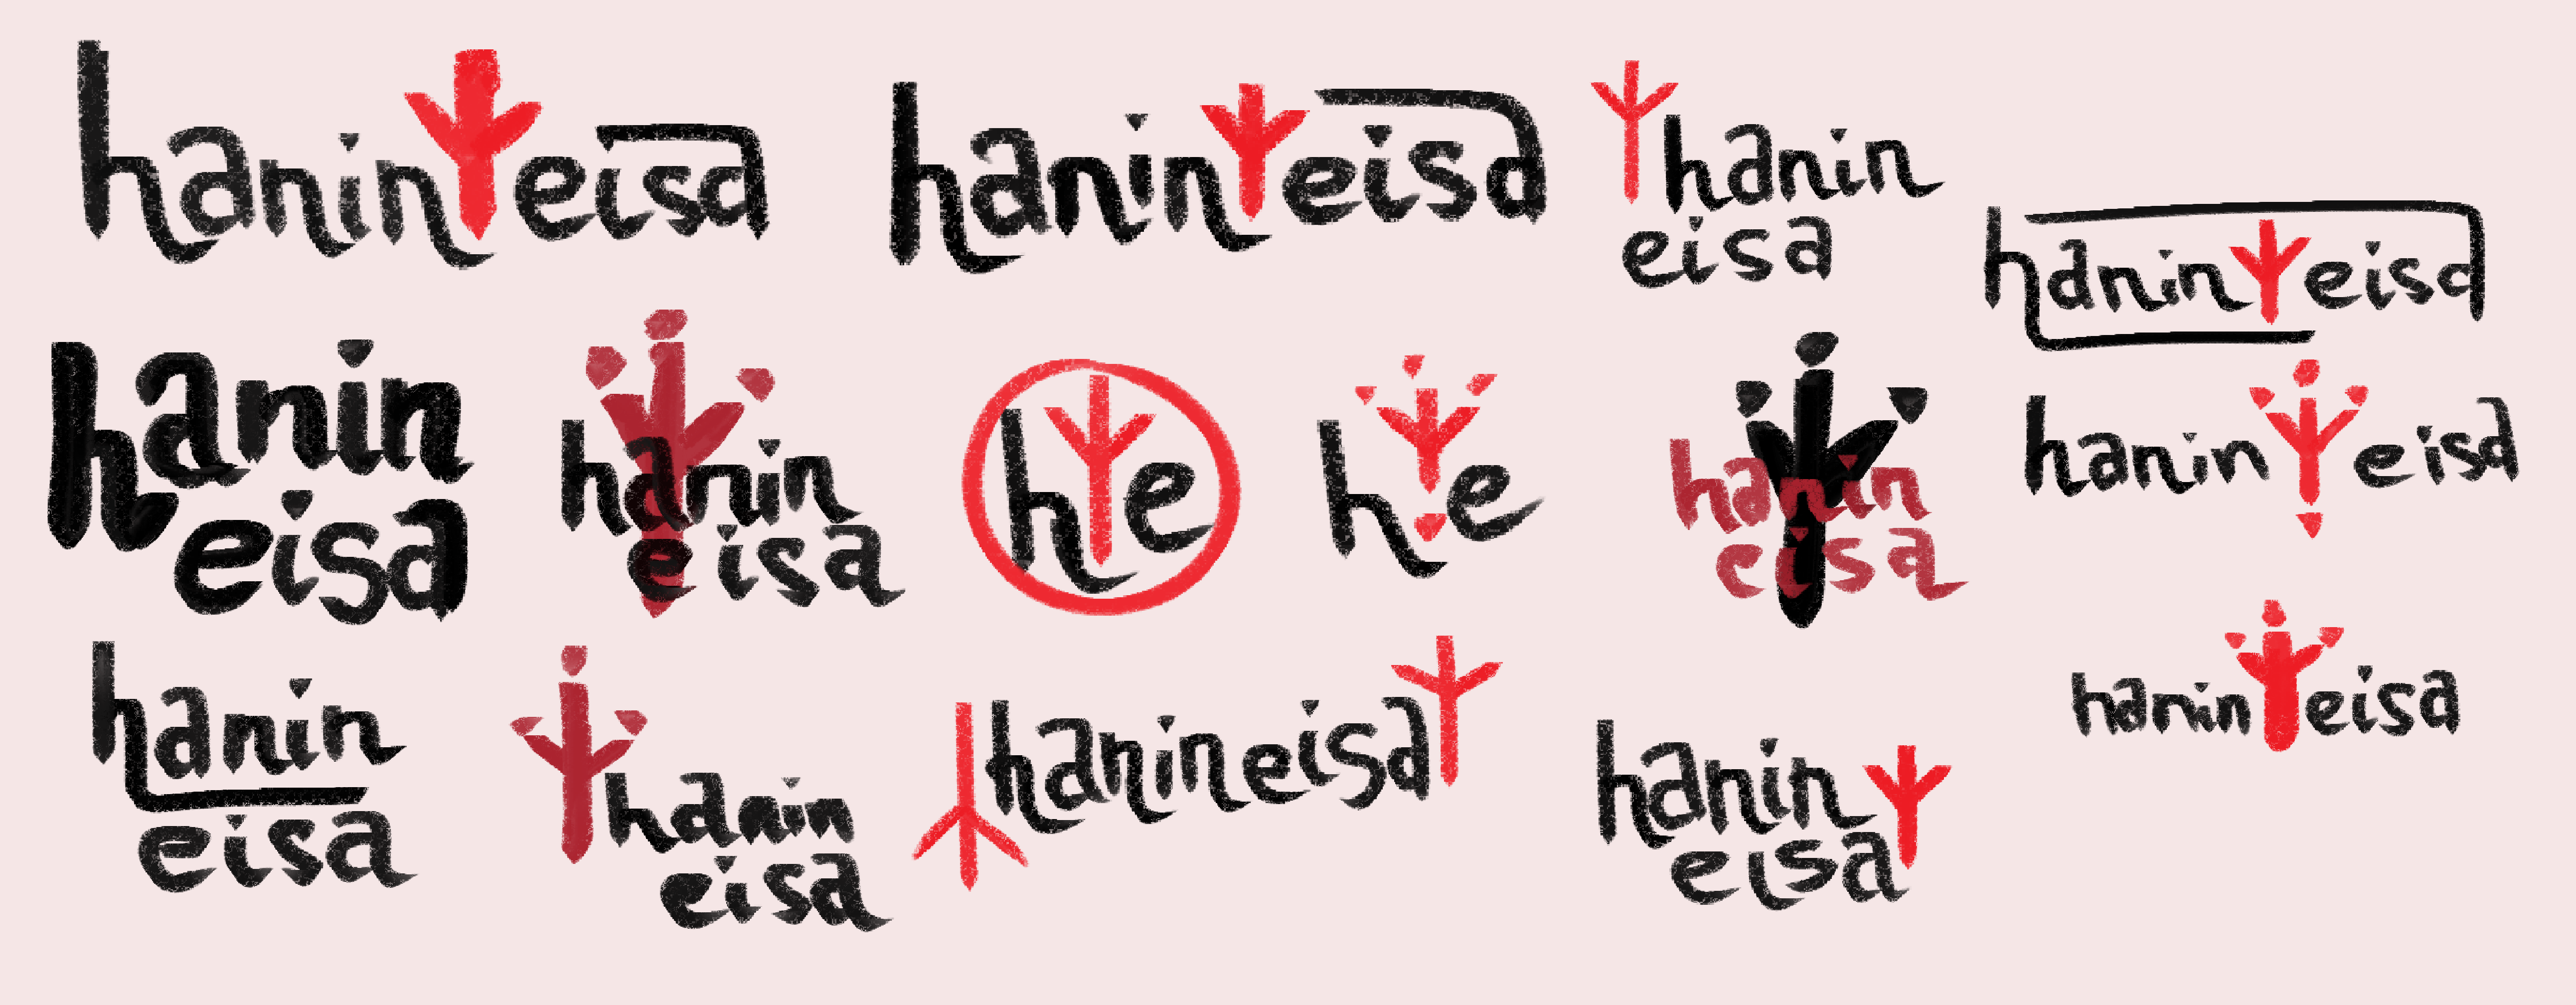 hanin eisa
hanin eisa
hanin
eisa
hanin eisa
hanin
eisa
hanin
eisa
h e
h e
hanin
eisa
hanin eisa
hanin
eisa
hanin
eisa
hanineisa
hanin
eisa
hanin eisa